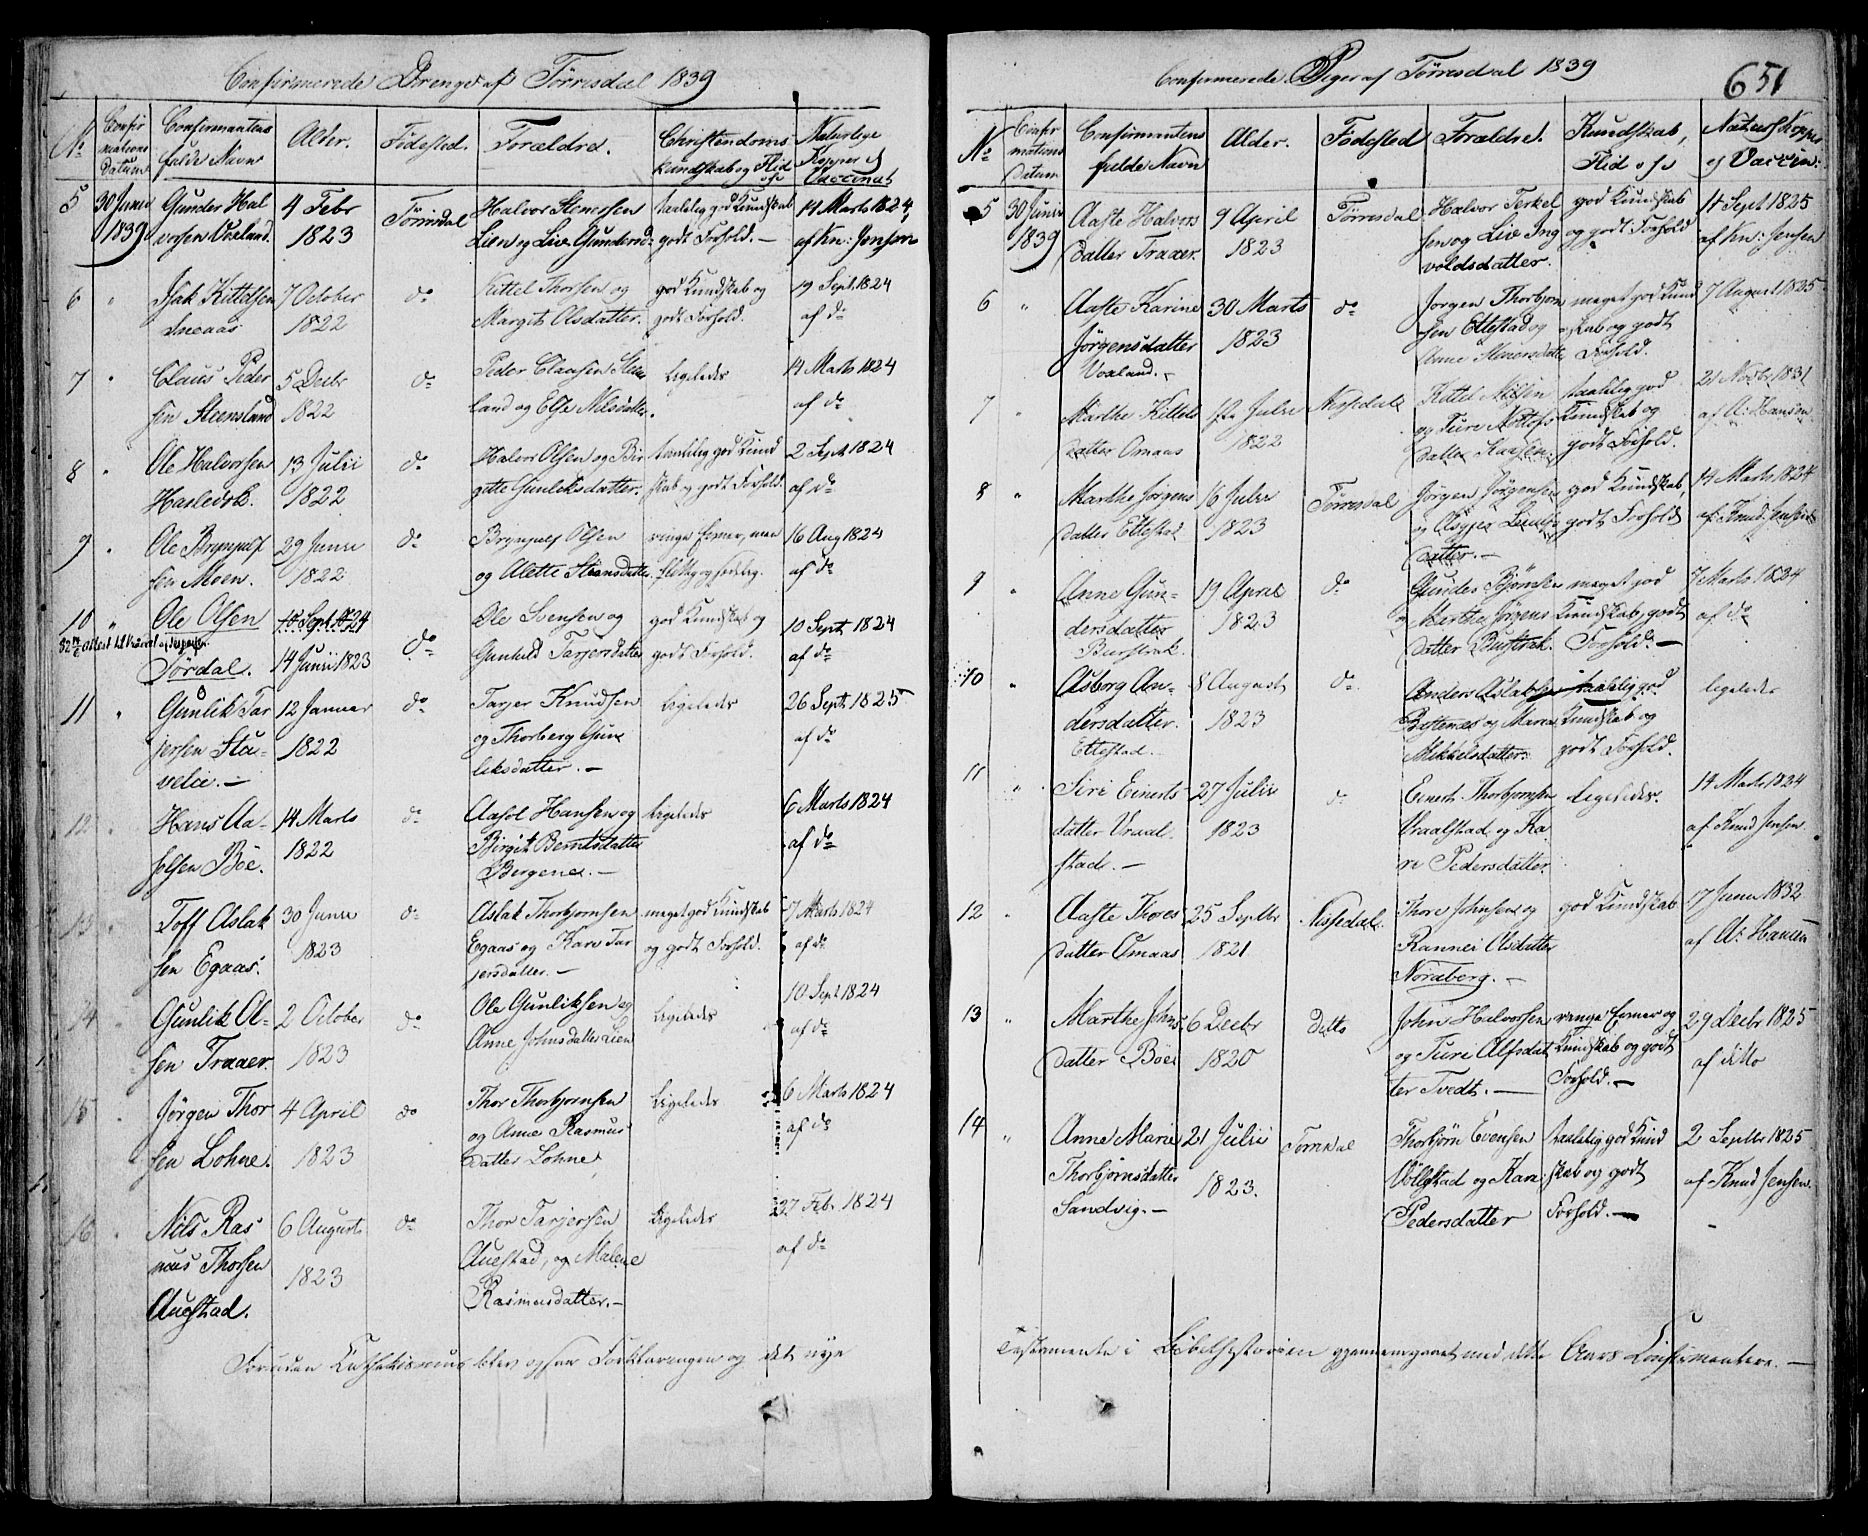 Confirmerede Drenge af Tørresdal 1839
No
Confir
mations
Datum
Confirmantens
fulde Navn
Alder.
Fødested.
Forældre.
Christendoms
kundskab og Flid
osv
Naturlige
Kopper &
Vaccinat
5 30 Junii
1839
Gunder Hal
vorsen Voxland.
4 Febr
1823
Tørrisdal
Halvor Stenersen
Lien og Liv Gundersd:
taalelig god Kundskab
godt Forhold. —
14 Marts 1824
af Kn: Jensen
6 "
Isak Kittelsen
7 October
1822
do
Kittel Thorsen og
Margit Olsdatter.
god Kundskab og
godt Forhold.
19 Sept. 1824
af do
7 "
Claus Peder
sen Steensland
5 Decbr
1822
do
Peder Clausen Steens
land og Else Nilsdatter.
ligeledes
14 Marts 1824
af do
8 "
Ole Halvorsen
13 Julii
1822
do
Halvor Olsen og Bir
gitte Gunleksdatter.
taalelig god Kund
skab og godt Forhold.
2 Sept 1824
af do
9 "
Ole Brynjulf
sen Moen.
29 Junii
1822
do
Brynjulf Olsen
og Alette Steensdatter.
ringe Evner, men
flittig og sædelig.
16 Aug 1824
af do
10 "
Ole Olsen
Tørdal.
10 Sept. 1824
14 Junii 1823
do
Ole Svensen og
Gunhild Tarjersdatter
god Kundskab og
godt Forhold.
10 Sept 1824
af do
11 "
Gunlik Tar
jersen Sta-
velie. —
12 Januar
1822
do
Tarjer Knudsen
og Thorberg Gun
leksdatter. —
Ligeledes
26 Sept 1825
af do
12 "
Hans Aa-
solsen Böe.
14 Marts
1822
do
Aasol Hansen og
Birgit Berntsdatter
Bergene. —
ligeledes
6 Marts 1824
af do
13 "
Toff Aslak
sen Egaas.
30 Junii
1823
do
Aslak Thorbjornsen
Egaas og Kari Tar
jersdatter. —
meget god Kundskab
og godt Forhold.
7 Marts 1824
af do
14 "
Gunlik Ol-
sen Traaer.
2 October
1823
do
Ole Gunliksen og
Anne Johnsdatter Lien
Ligeledes
10 Sept 1824
af do
15 "
Jörgen Thor
sen Lohne.
4 April
1823
do
Thor Thorbjornsen
og Anne Rasmus
datter Lohne
Ligeledes
6 Marts 1824
af do
16 "
Nils Ras
mus Thorsen
Auestad.
6 August
1823
do
Thor Tarjersen
Auestad, og Malene
Rasmusdatter. —
Ligeledes
27 Febr. 1824
af do
Foruden Kathekismus blev ogsaa Forklaringen og det nye
Confirmerede Piger af Tørresdal 1839
651
No
Confir
mations
Datum
Confirmantens
fulde Navn
Alder.
Fødested
Forældre.
Kundskab,
Flid osv
Naturl Kopper
og Vaccin:
5 30 Junii
1839
Aaste Halvors
datter Traaer.
9 April
1823
Tørresdal
Halvor Terkel
sen og Liv Ing
voldsdatter.
god Kundskab
og godt Forhold
11 Sept 1825
af Kn: Jensen
6 "
Aaste Karine
Jörgensdatter
Voxland. —
30 Marts
1823
do
Jörgen Thorbjørn
sen Ettestad og
meget god Kund
skab og godt
Forhold.
7 August 1825
7 "
Marthe Kittels
datter Omaas
12 Julii
1822
Nissedal
Kittel Nilsen
og Turi Nottofs
datter
taalelig god
Kundskab og
godt Forhold.
21 Novbr 1831
af A: Hansen
8 "
Marthe Jörgens
datter Ettestad
16 Julii
1823
Tørresdal
Jörgen Jörgensen
datter. —
god Kundskab,
godt Forhold
14 Marts 1824
af Knud Jensen
9 "
Anne Gun-
dersdatter
Burstrak.
19 April
1823
do
Gunder Bjørnsen
og Marthe Jörgens
datter Burstrak.
meget god
Kundskab, godt
Forhold. —
7 Marts 1824
af do
10 "
Asborg An-
dersdatter.
Ettestad.
8 August
1823
do
Anders Aslaksen
og Maren
Mikkelsdatter.
taalelig god
Kundskab og
godt Forhold.
ligeledes
11 "
Siri Einerts
datter Vraal
stad. —
27 Julii
1823
do
Einert Thorbjornsen
Vraalstad og Ka
ri Pedersdatter
Ligeledes.
14 Marts 1824
af Knud Jensen
12 "
Aaste Thores
datter Omaas
25 Septbr
1821
Nissedal.
Thore Johnsen og
Rannei Olsdatter
Nordberg. —
god Kundskab
17 Junii 1832
af A: Hansen
13 "
Marthe Johns
datter Böe
6 Decbr
1820
ditto
John Halvorsen
og Turi Alfsdat
ter Tvedt. —
ringe Evner og
Kundskab og godt
Forhold. —
29 Decbr 1825
af ditto
14 "
Anne Marie
Thorbjørnsdatter
Sandvig. —
21 Julii
1823.
Torrisdal
Thorbjörn Evensen
Vollestad og Kara
Pedersdatter
taalelig god Kund
skab og godt
Forhold. —
2 Septbr 1825
af Knud Jensen
Testamente i Bibelhistorien gjennemgaaet med dette Aars Confirmantere. —